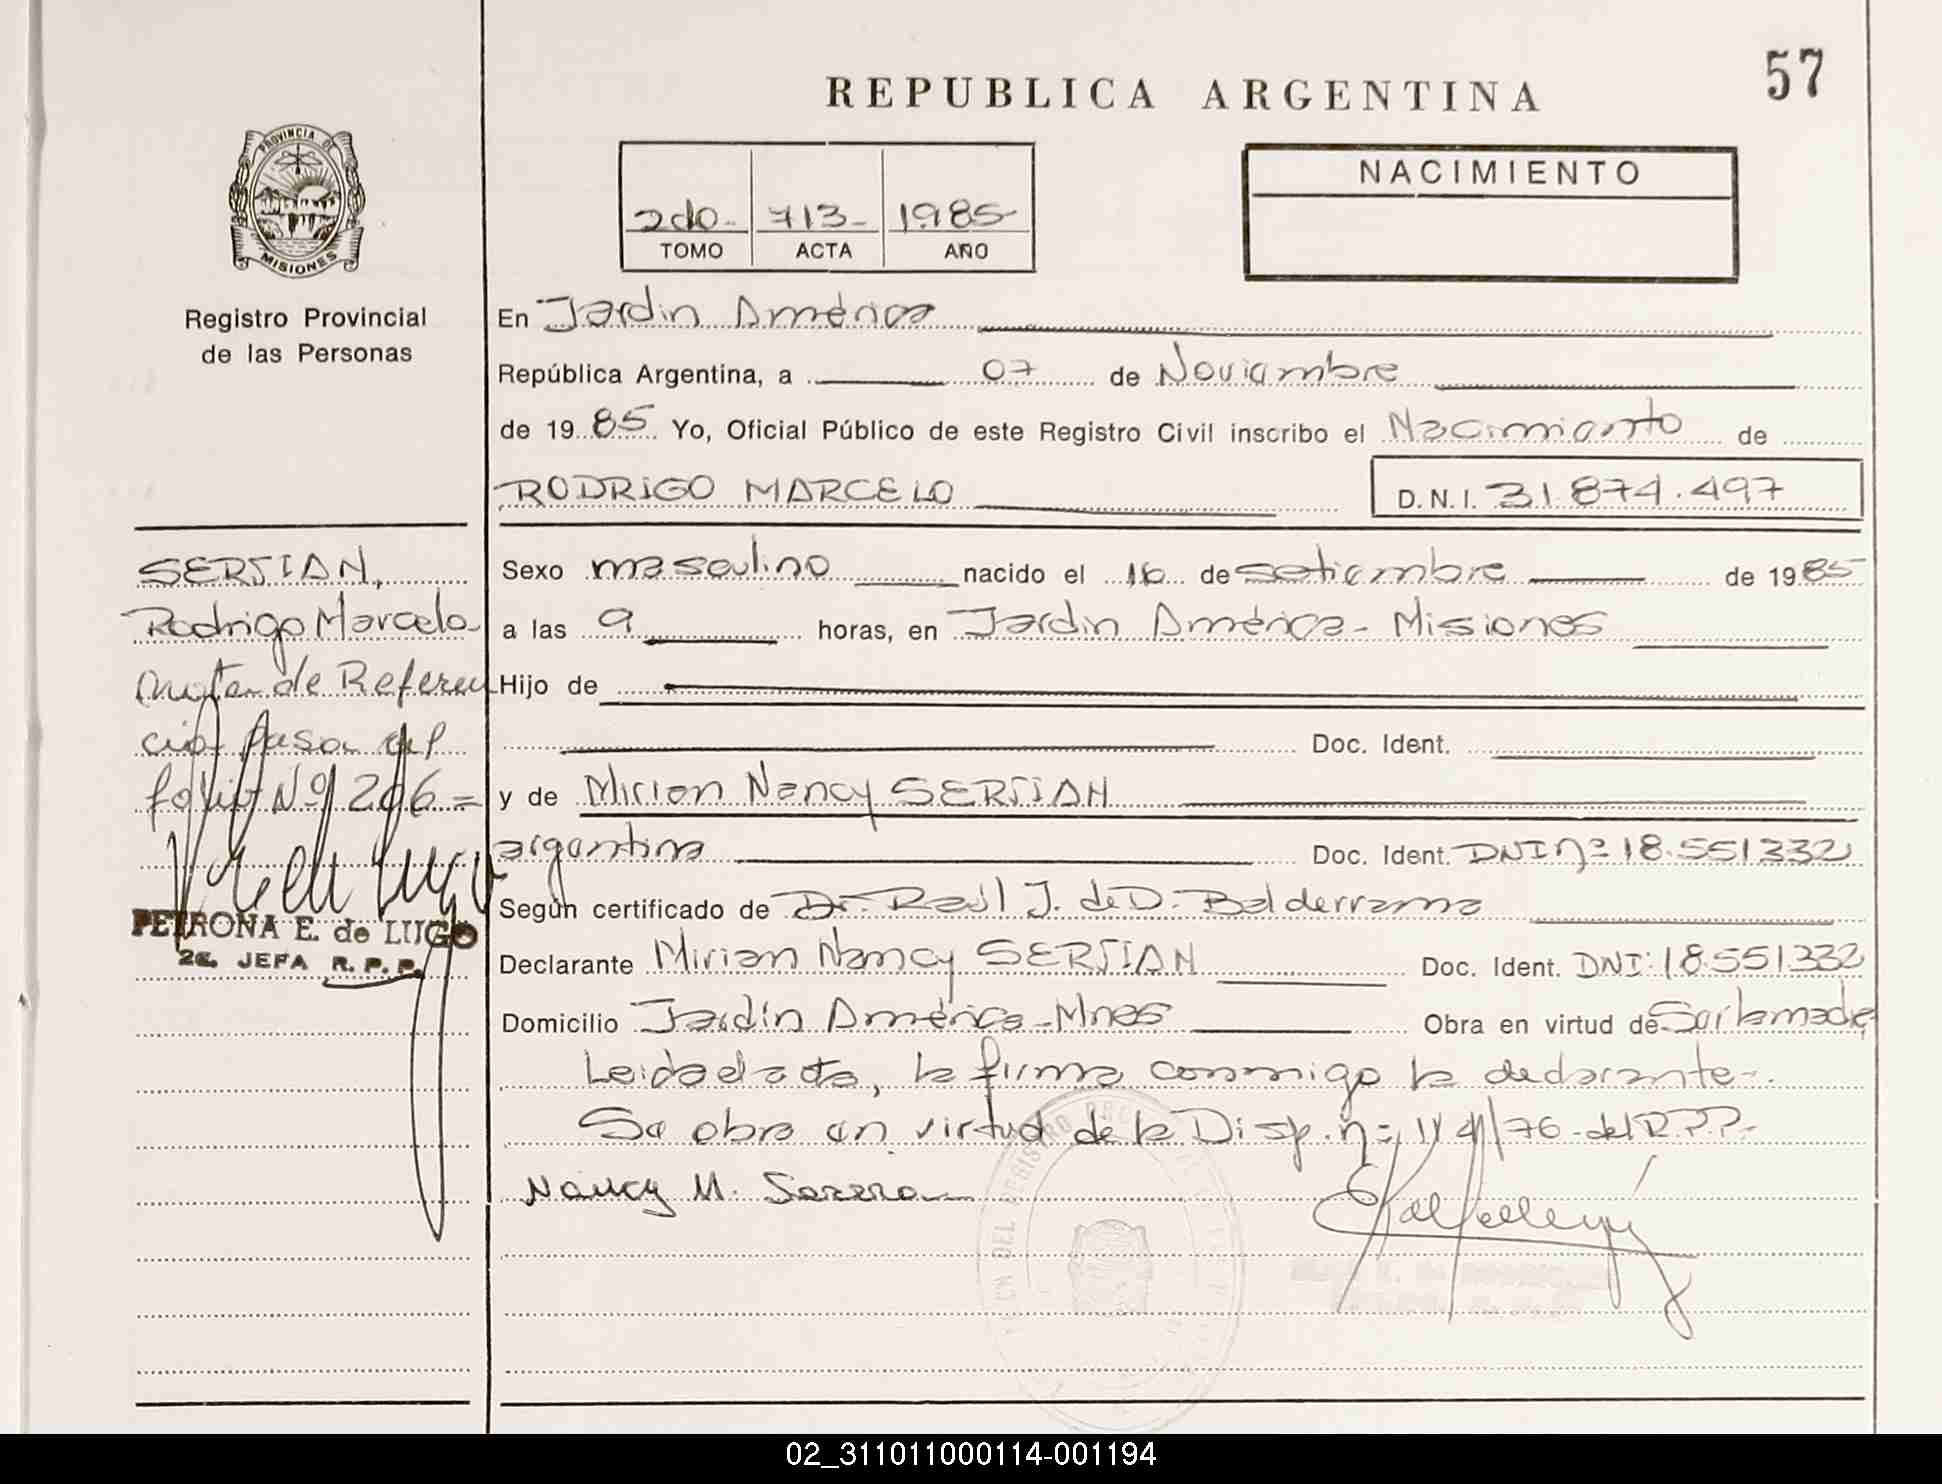 57
REPUBLICA ARGENTINA
PROVINCIA DE
MISIONES
2do- 713- 1985-
TOMO ACTA AÑO
NACIMIENTO
Registro Provincial
de las Personas
En Jardin América
República Argentina, a 07 de Noviembre
de 1985 Yo, Oficial Público de este Registro Civil inscribo el Nacimiento de
RODRIGO MARCELO D.N.I. 31.874.497
SERJIAN,
Rodrigo Marcelo
Nota de Referen
cia pasa al
folio Nº 206=
PETRONA E. de LUGO
2a. JEFA R. P. P.
Sexo masculino nacido el 16 de setiembre de 1985
a las 9 horas, en Jardin América- Misiones
Hijo de
Doc. Ident.
y de Mirian Nancy SERJIAN
argentina Doc. Ident. DNI nº 18.551332
Según certificado de Dr. Raúl J. de D. Balderrama
Declarante Mirian Nancy SERJIAN Doc. Ident. DNI: 18551332
Domicilio Jardín América-Mnes Obra en virtud de Ser la madre
Leida el acta, la firma conmigo la declarante-.
Se obra en virtud de la Disp. nº 114/76- del R.P.P.-
Nancy M.
02_311011000114-001194